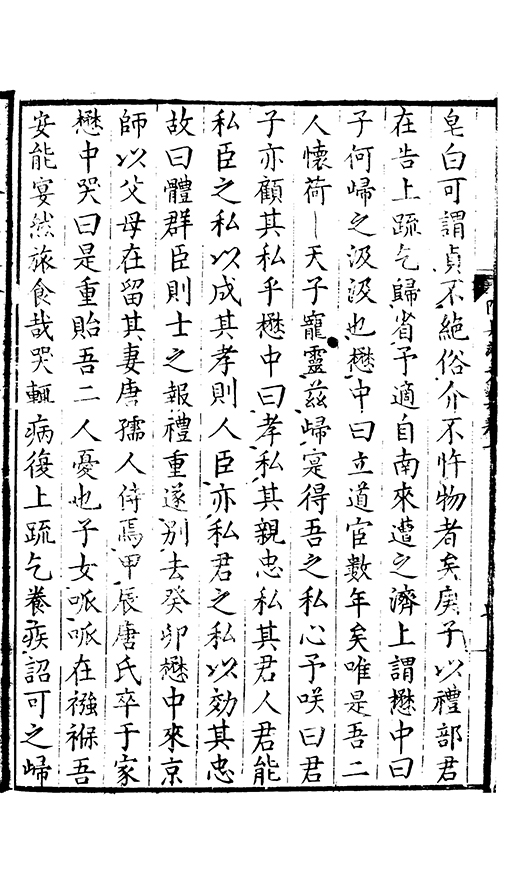 皂白可謂貞不絶俗介不忤物者矣庚子以禮部君
在告上疏乞歸省予適自南來遭之濟上謂懋中曰
子何歸之汲汲也懋中曰立道宦數年矣唯是吾二
人懷荷天子寵靈茲歸寔得吾之私心予咲曰君
子亦顧其私乎懋中曰孝私其親忠私其君人君能
私臣之私以成其孝則人臣亦私君之私以効其忠
故曰體群臣則士之報禮重遂别去癸卯懋中來京
師以父母在留其妻唐孺人侍焉甲辰唐氏卒于家
懋中哭曰是重貽吾二人憂也子女呱呱在襁褓吾
安能宴然旅食哉哭輒病復上疏乞養疾詔可之歸